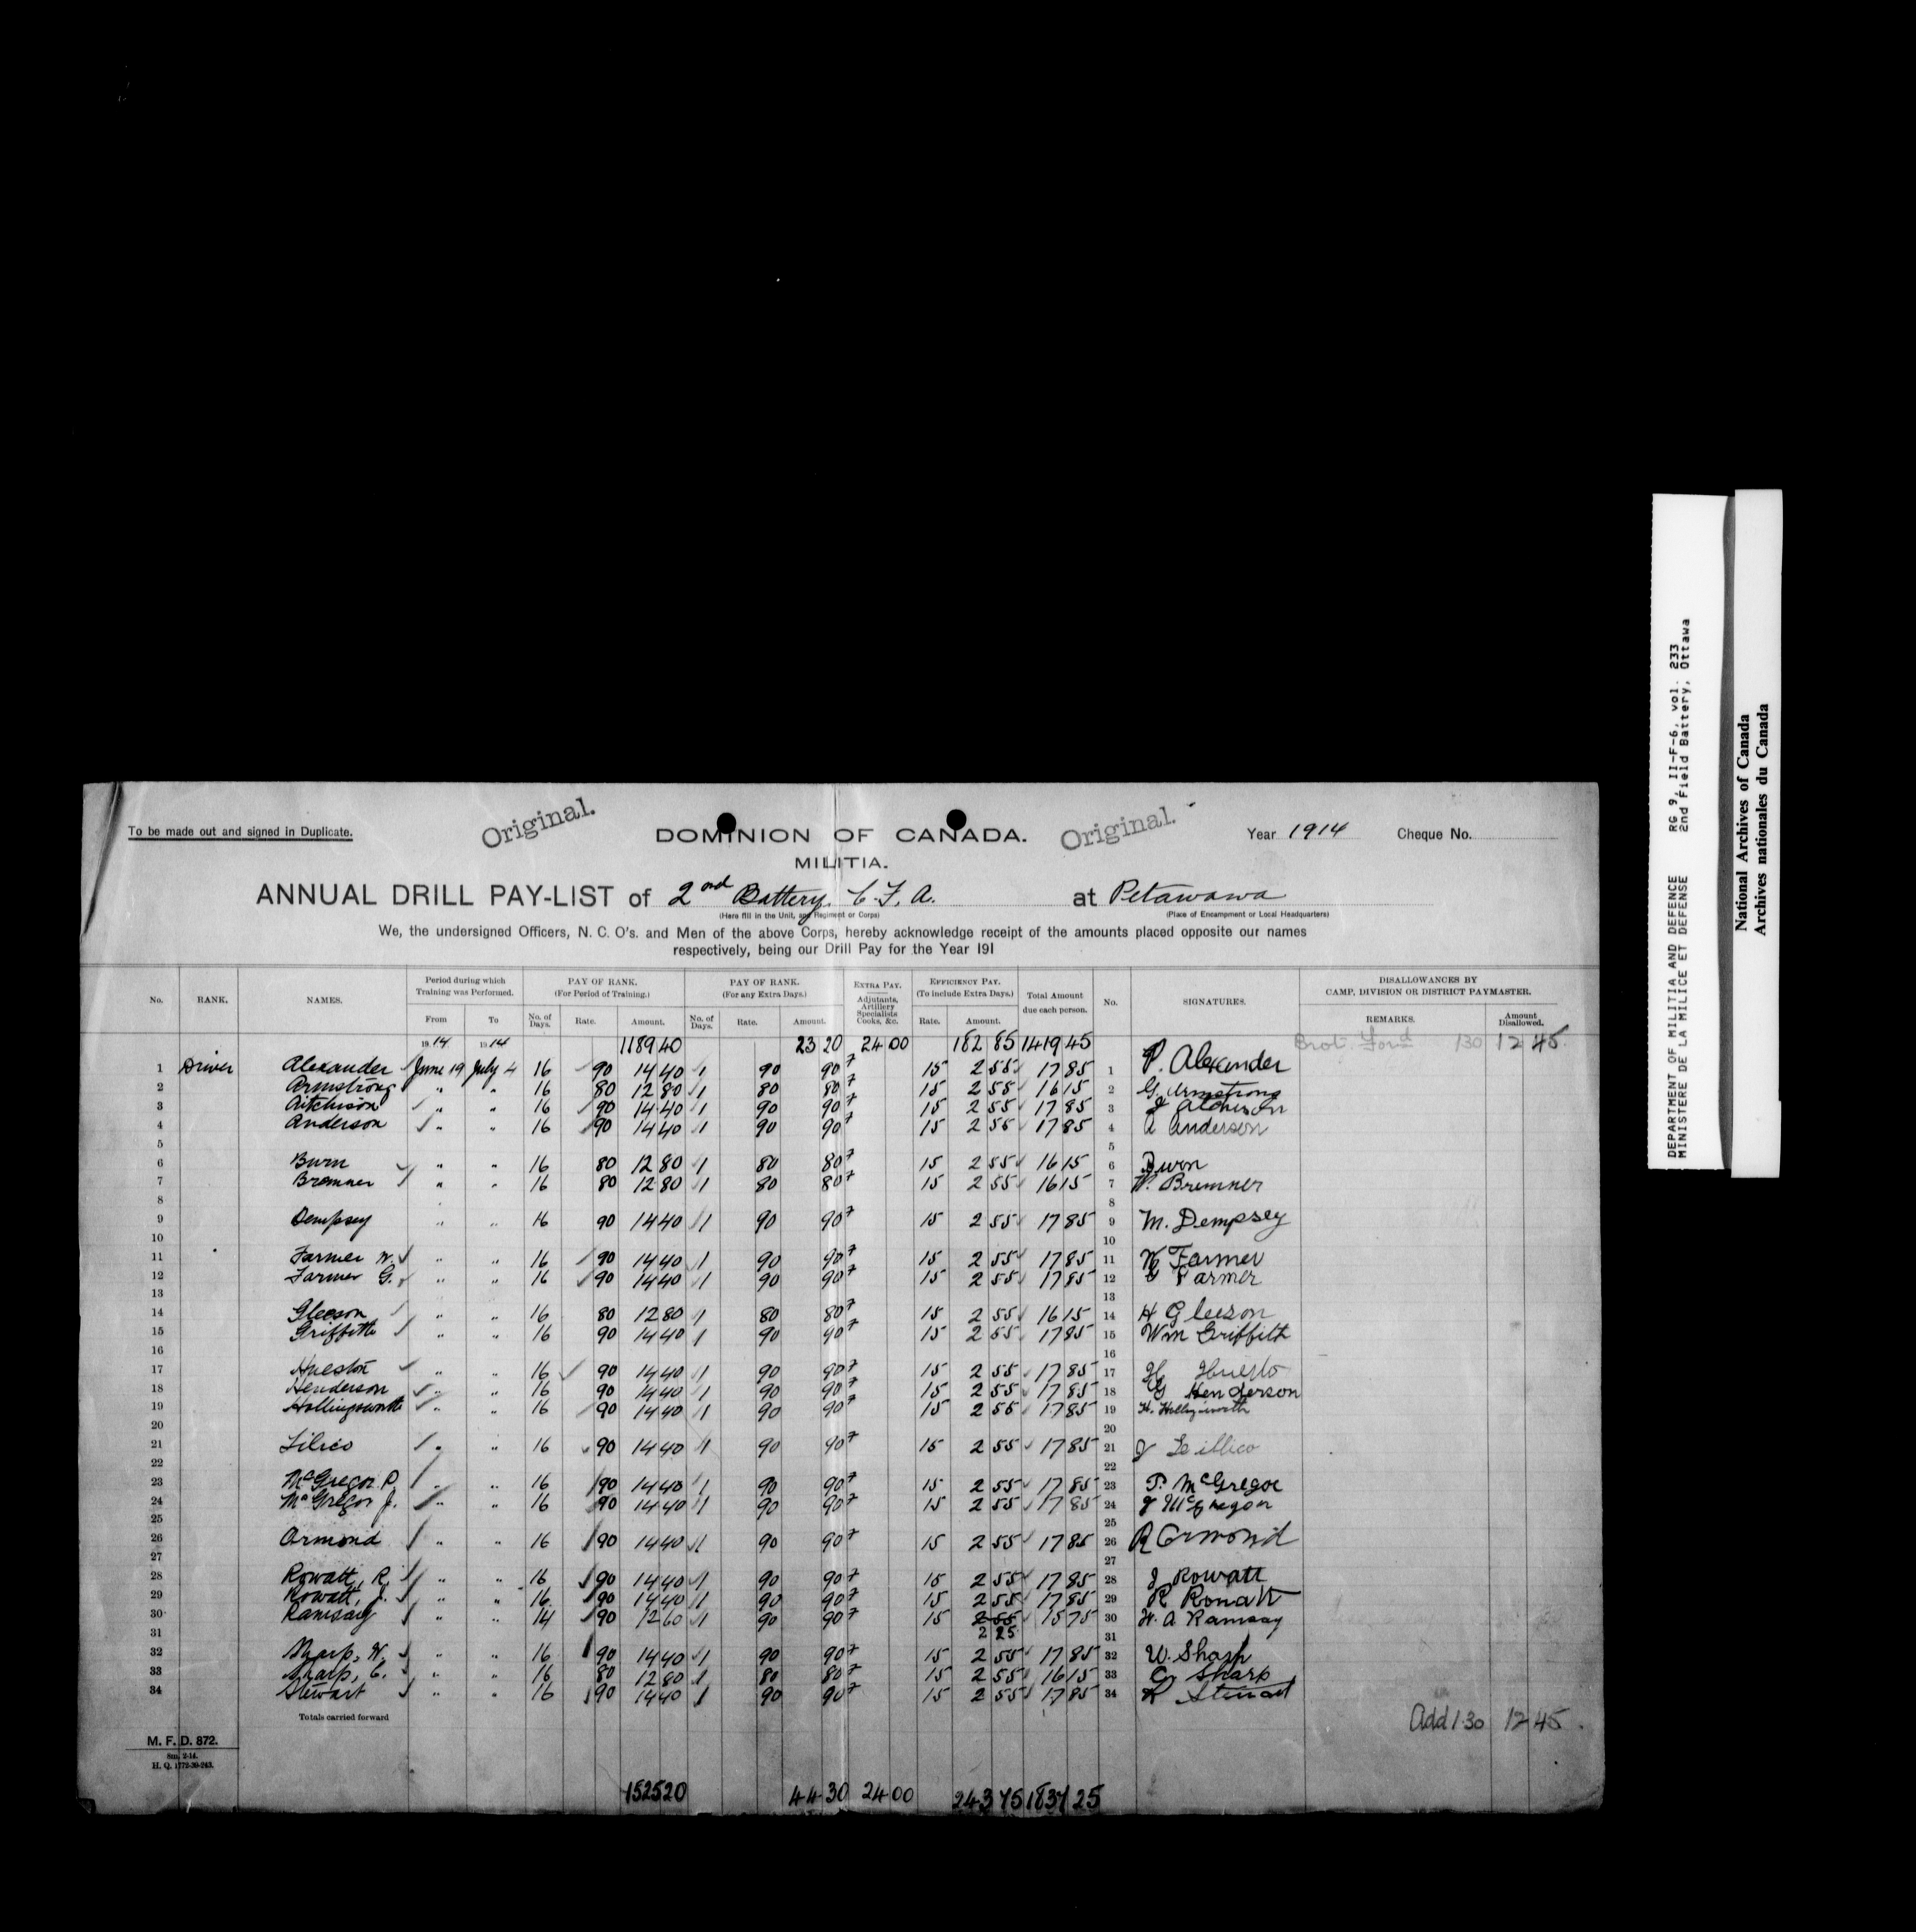 To be made out and signed in Duplicate.
Original.
DOMINION OF CANADA.
Original.
Year 1914
Cheque No.
MILITIA.
ANNUAL DRILL PAY-LIST of 2nd Battery, C.F.A. at Petawawa
(Here fill in the Unit, and Regiment or Corps) (Place of Encampment or Local Headquarters)
We, the undersigned Officers, N. C. O's. and Men of the above Corps, hereby acknowledge receipt of the amounts placed opposite our names
respectively, being our Drill Pay for the Year 191
No. RANK. NAMES. Period during which Training was Performed. From To PAY OF RANK. (For Period of Training.) No. of Days. Rate. Amount. PAY OF RANK. (For any Extra Days.) No. of Days. Rate. Amount. EXTRA PAY. Adjutants, Artillery Specialists Cooks, &c. EFFICIENCY PAY. (To include Extra Days.) Rate. Amount. Total Amount due each person. No. SIGNATURES. DISALLOWANCES BY CAMP, DIVISION OR DISTRICT PAYMASTER. REMARKS. Amount Disallowed.
1914 1914 1189 40 23 20 24 00 182 85 1419 45 Brot. Ford 130 12 45.
1 Driver Alexander June 19 July 4 16 90 14 40 1 90 90 7 15 2 55 17 85 1 P. Alexander
2 Armstrong " " 16 80 12 80 1 80 80 7 15 2 55 16 15 2 G. Armstrong
3 Aitchison " " 16 90 14 40 1 90 90 7 15 2 55 17 85 3 J Aitchison
4 Anderson " " 16 90 14 40 1 90 90 7 15 2 55 17 85 4 A Anderson
5 5
6 Burn " " 16 80 12 80 1 80 80 7 15 2 55 16 15 6 Burn
7 Bremner " " 16 80 12 80 1 80 80 7 15 2 55 16 15 7 W. Bremner
8 8
9 Dempsey " " 16 90 14 40 1 90 90 7 15 2 55 17 85 9 M. Dempsey
10 10
11 Farmer W. " " 16 90 14 40 1 90 90 7 15 2 55 17 85 11 W Farmer
12 Farmer G. " " 16 90 14 40 1 90 90 7 15 2 55 17 85 12 G Farmer
13 13
14 Gleeson " " 16 80 12 80 1 80 80 7 15 2 55 16 15 14 H Gleeson
15 Griffith " " 16 90 14 40 1 90 90 7 15 2 55 17 85 15 Wm Griffith
16 16
17 Hueston " " 16 90 14 40 1 90 90 7 15 2 55 17 85 17 H
18 Henderson " " 16 90 14 40 1 90 90 7 15 2 55 17 85 18 G Henderson
19 Hollingsworth " " 16 90 14 40 1 90 90 7 15 2 55 17 85 19 H. Hollingsworth
20 20
21 Lilico " " 16 90 14 40 1 90 90 7 15 2 55 17 85 21 J Leillico
22 22
23 McGregor P. " " 16 90 14 40 1 90 90 7 15 2 55 17 85 23 P. McGregor
24 McGregor J. " " 16 90 14 40 1 90 90 7 15 2 55 17 85 24 J McGregor
25 25
26 Ormond " " 16 90 14 40 1 90 90 7 15 2 55 17 85 26 R Ormond
27 27
28 Rowatt, R. " " 16 90 14 40 1 90 90 7 15 2 55 17 85 28 J Rowatt
29 Rowatt, J. " " 16 90 14 40 1 90 90 7 15 2 55 17 85 29 R Rowatt
30 Ramsay " " 14 90 12 60 1 90 90 7 15 2 55 15 75 30 H. A Ramsay
31 2 25 31
32 Sharp, W. " " 16 90 14 40 1 90 90 7 15 2 55 17 85 32 W. Sharp
33 Sharp, C. " " 16 80 12 80 1 80 80 7 15 2 55 16 15 33 C Sharp
34 Stewart " " 16 90 14 40 1 90 90 7 15 2 55 17 85 34 R Stewart
Totals carried forward
Add 1.30 12 45.
M. F. D. 872.
8m. 2-14.
H. Q. 1772-39-243.
1525 20 44 30 24 00 243 75 1837 25
DEPARTMENT OF MILITIA AND DEFENCE RG 9, II-F-6, vol. 233
MINISTERE DE LA MILICE ET DEFENSE 2nd Field Battery, Ottawa
National Archives of Canada
Archives nationales du Canada